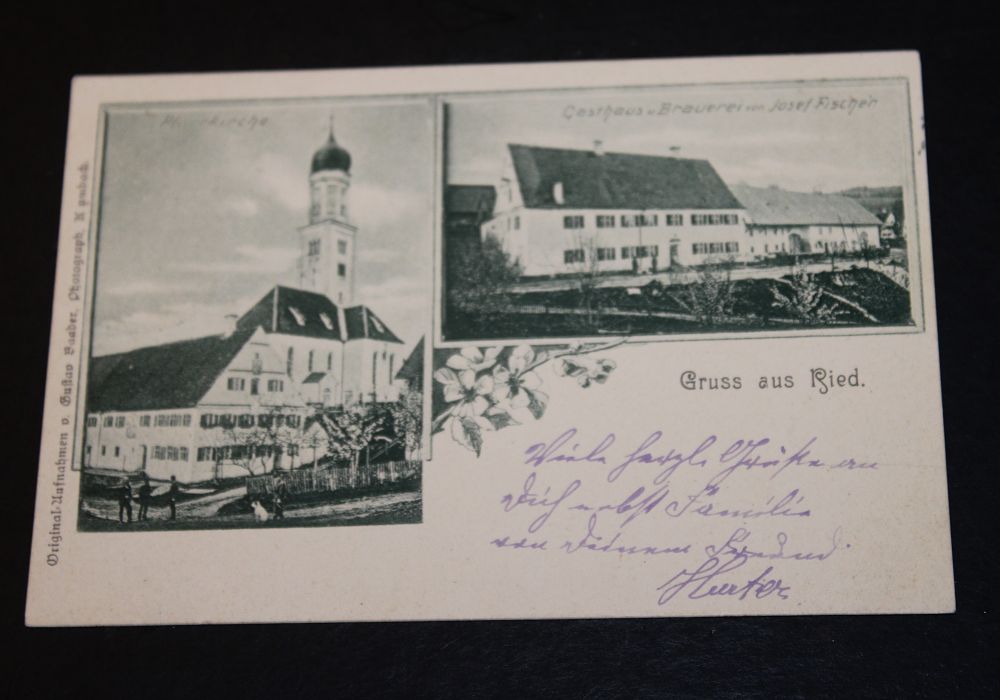 Pfarrkirche
Gasthaus u Brauerei von Josef Fischer
Original-Aufnahmen v. Gustav Baader, Photograph,
Gruss aus Ried.
Viele herzl. Grüße an
Dich nebst Familie
von Deinem Freund
Hurter